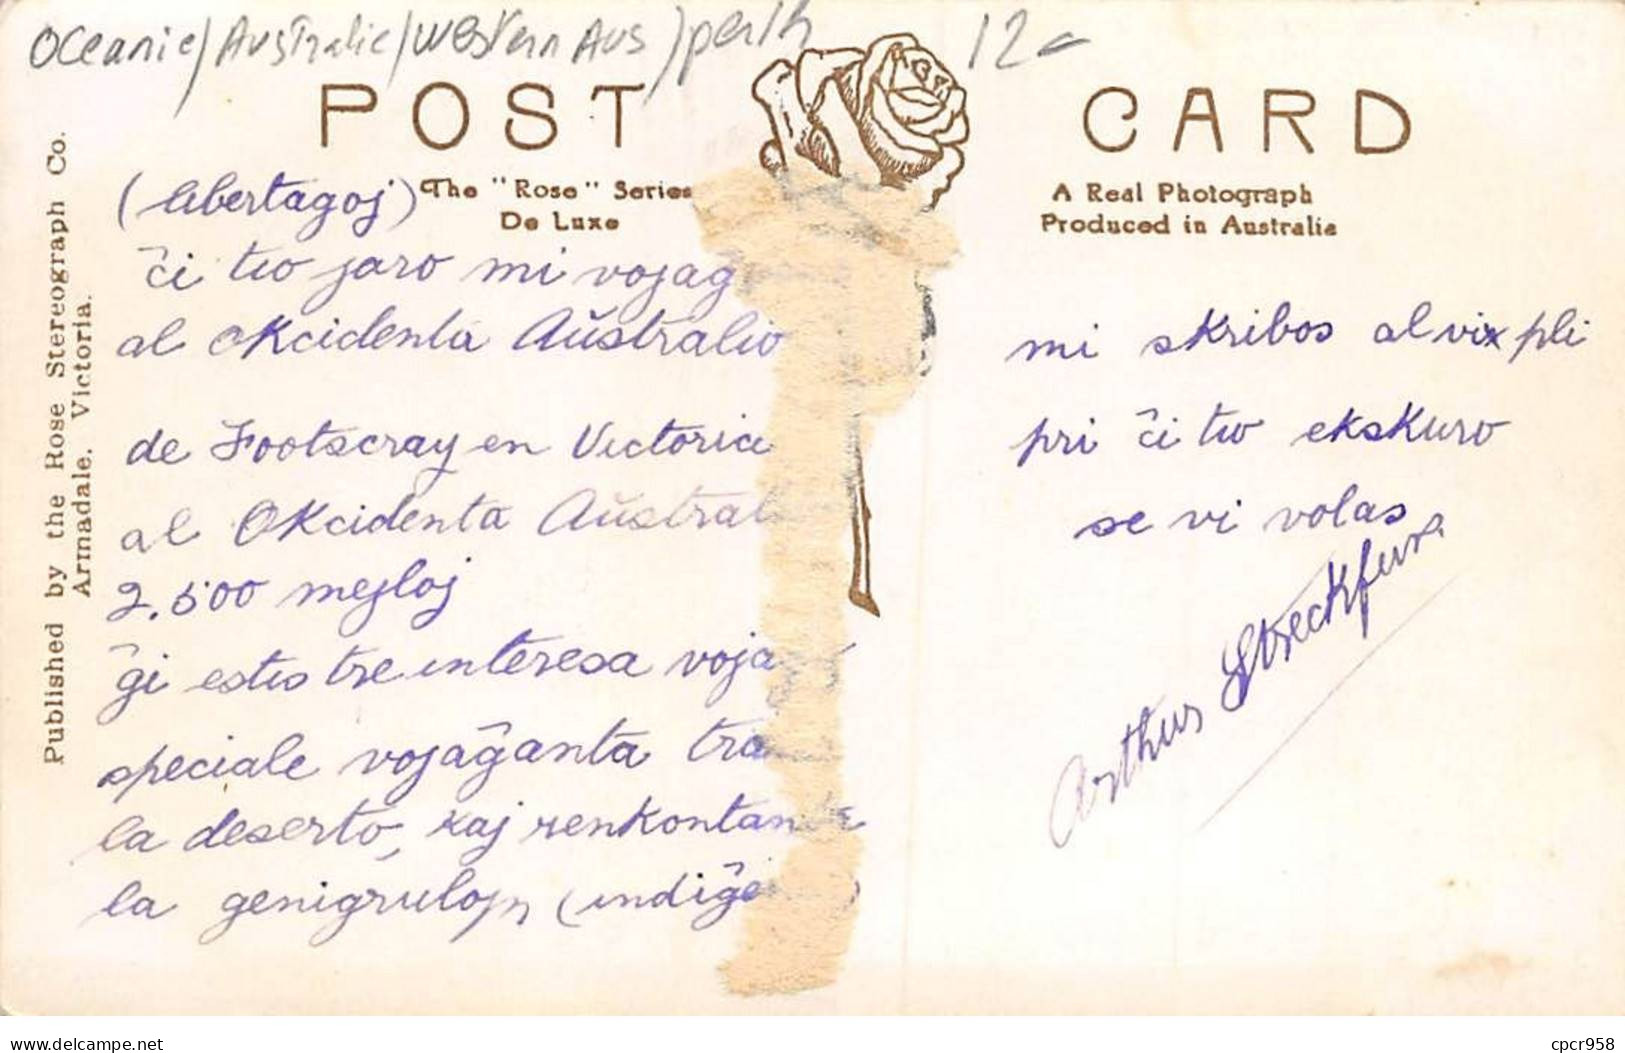 Oceanie/Australie/Western Aus/perth 12-
POST CARD
The "Rose" Series
De Luxe
A Real Photograph
Produced in Australia
Published by the Rose Stereograph Co.
Armadale. Victoria.
(libertagoj)
ĉi tio jaro mi vojaĝ
al okcidenta Aŭstralio
de Footscray en Victoria
al Okcidenta Aŭstral
2,500 mejloj
ĝi estis tre interesa voja
speciale vojaĝanta tra
la deserto, kaj renkontante
la (indiĝe
mi skribos al vi pli
pri ĉi tio ekskuro
se vi volas
Arthur
cpcr958